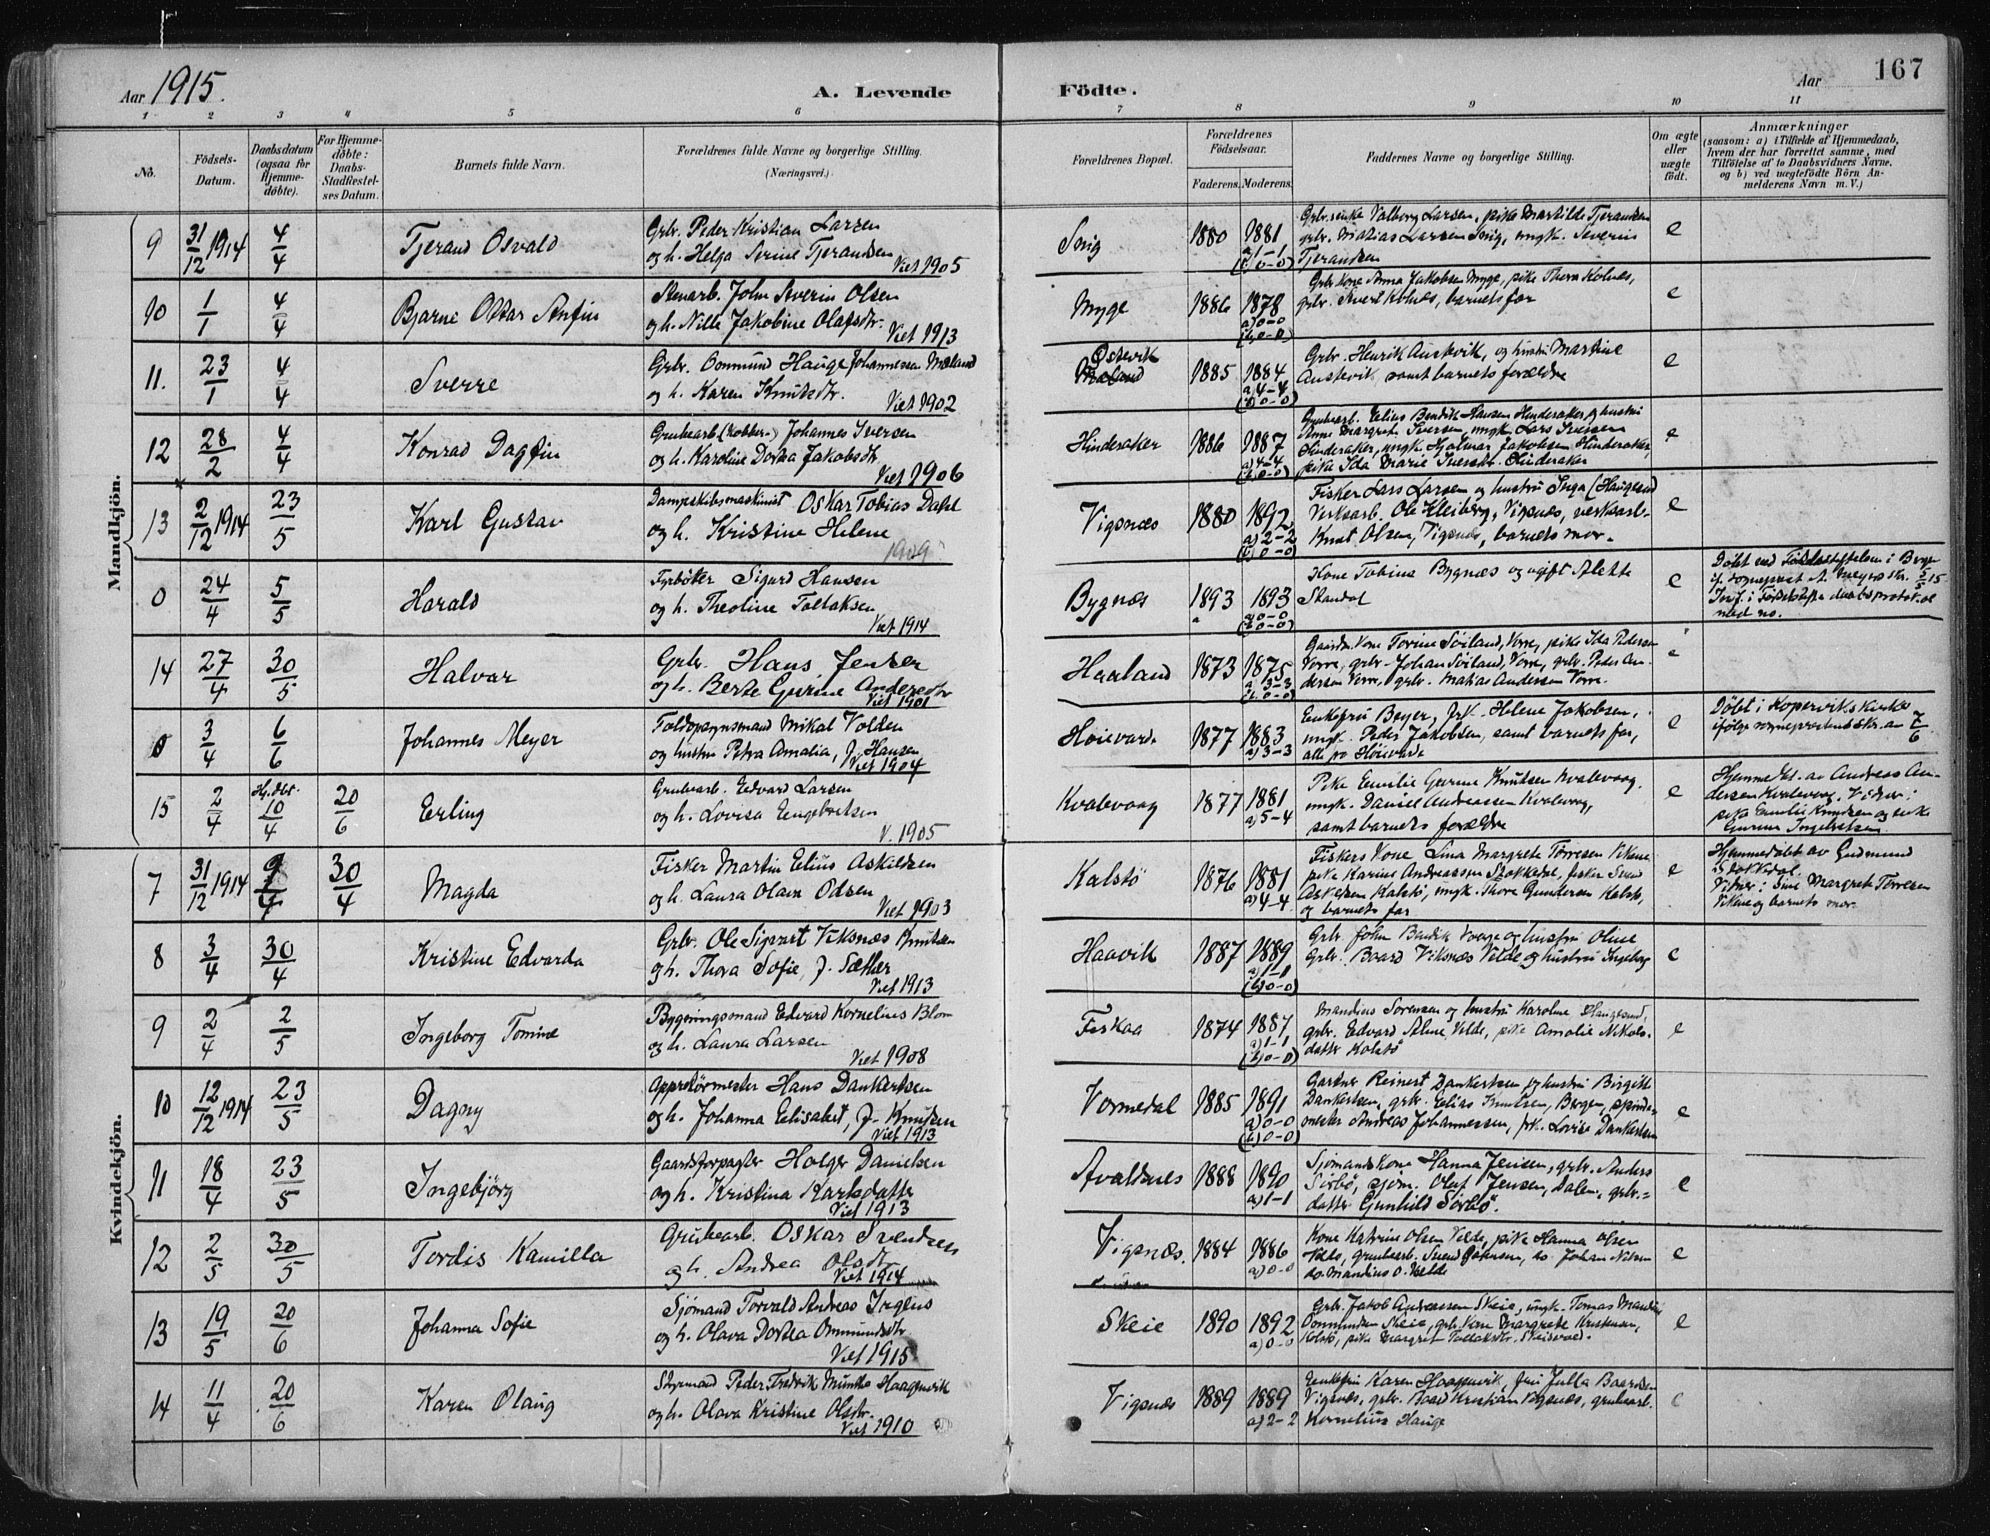 Aar 1915.
A. Levende
Födte.
Aar
167
1 2 3 4 5 6 7 8 9 10 11
No.
Födsels-Datum.
Daabsdatum (ogsaa for Hjemme-döbte).
For Hjemme-döbte: Daabs-Stadfæstel-ses Datum.
Barnets fulde Navn.
Forældrenes fulde Navne og borgerlige Stilling.
(Næringsvei.)
Forældrenes Bopæl.
Forældrenes Födselsaar.
Faderens. Moderens.
Faddernes Navne og borgerlige Stilling.
Om ægte eller uægte födt.
Anmærkninger
(saasom: a) i Tilfælde af Hjemmedaab, hvem der har forrettet samme, med Tilföielse af to Daabsvidners Navne, og b) ved uægtefödte Börn Anmelderens Navn m. V.)
Mandkjön.
9 31/12 1914 4/4 Tjerand Osvald Grbr. Peder Kristian Larsen
og h. Helga Serine Tjerandsen Viet 1905
Snig 1880 1881 a) 1-1 (b) 0-0)
Grbr.enke Valborg Larsen, pike Martilde Tjerandsen
grbr. Matias Larsen Snig, ungk. Severin
Tjerandsen e
10 1/1 4/4 Bjarne Ottar Anfin Stenarb. John Severin Olsen
og h. Nille Jakobine Olafsdtr. Viet 1913
Myge 1886 1878 a) 0-0 (b) 0-0)
Grbr.kone Anna Jakobsen Myge, pike Thora Kolnes,
grbr. Sivert Kolnes, barnets far e
11. 23/1 4/4 Sverre Grbr. Oommund Hauge Johannessen Mæland
og h. Karen Knutsdtr. Viet 1902
Østevik 1885 1884 a) 4-4 (b) 0-0)
Grbr. Henrik Austevik, og hustru Martine
Austevik samt barnets forældre e
12 28/2 4/4 Konrad Dagfin Grubearb. (Kobber-) Johannes Iversen
og h. Karoline Dortea Jakobsdtr. Viet 1906
Hinderaker 1886 1887 a) 4-4 (b) 0-0)
Grubearb. Elius Bendik Hansen Hinderaker, og hustru
Anne Margret Iversen, ungk. Lars Iversen
Hinderaker, ungk. Hjalmar Jakobsen Hinderaker,
pike Ida Marie Iversdtr. Hinderaker e
13 2/12 1914 23/5 Karl Gustav Dampskibsmaskinist Oskar Tobias Dahl
og h. Kristine Helene 1909
Vigsnæs 1880 1892 a) 2-2 (b) 0-0)
Fisker Lars Larsen og hustru Inga (Haugesund
Verksarb. Ole Kleiberg, Vigsnæs, verksarb.
Knut Olsen, Vigsnæs, barnets mor. e
0 24/4 5/5 Harald Fyrbøter Sigurd Hansen
og h. Theoline Tollaksen Viet 1914
Bygnæs 1893 1893 a) 0-0 (b) 0-0)
Kone Tobina Bygnæs og ugift Alette
Skandal e
Døbt ved Fødselsstiftelsen i Bergen
if. sogneprest A. Meyers skr. 5/5 15
Inf. i Fødselsstift. daabsprotokol
med no.
14 27/4 30/5 Halvar Grbr. Hans Jensen
og h. Berte Gurine Andersdtr. Viet 1901
Hauland 1873 1875 a) 3-3 (b) 0-0)
Gaardm. Kone Torine Søiland, Vorre, pike Ida Pedersen
Vorre, grbr. Johan Søiland, Vorre, grbr. Peder An-
dersen Vorre, grbr. Matias Andersen Vorre. e
0 3/4 6/6 Johannes Meyer Toldopsynsmand Mikal Volden
og hustru Petra Amalia, f. Hansen Viet 1904
Høievarde 1877 1883 a) 3-3
Enkefru Beyer, frk. Helene Jakobsen,
ungk. Peder Jakobsen, samt barnets far,
alle pr Høievarde e
Døbt i Kopervik kirke
ifølge sogneprestens skr. av 7/6.
15 2/4 Hj.dbt. 10/4 20/6 Erling Grubearb. Edvard Larsen
og h. Lovisa Engebretsen V. 1905
Kvalevaag 1877 1881 a) 5-4
Pike Emilie Gurine Knutsen Kvalevaag,
ungk. Daniel Andreassen Kvalevaag,
samt barnets forældre e
Hjemmedbt. av Andreas An-
dersen Kvalevaag. Vidner:
pike Emilie Knudsen og enke
Gurine Ingebretsen.
Kvindekjön.
7 31/12 1914 9/4 30/4 Magda Fisker Martin Elius Askildsen
og h. Laura Olava Odsen Viet 1903
Kalstö 1876 1881 a) 4-4
Fiskers Kone Lina Margrete Tørresen Vikene,
pike Karine Andreassen Stokkedal, fisker Svend
Askelsen Kalstö, ungk. Thore Gundersen Kalstö,
og barnets far e
Hjemmedøbt av Gudmund
Stokkedal.
Vidner: Sine Margrete Tørresen
Vikene og barnets mor.
8 3/4 30/4 Kristine Edvarda Grbr. Ole Sigvart Viksnæs Knutsen
og h. Thora Sofie, f. Sæther Viet 1913
Haavik 1887 1889 a) 1-1 (b) 0-0)
Grbr. John Bendik Vaage og hustru Oline
Grbr. Baard Viksnæs Velde og hustru Ingeborg e
9 2/4 2/5 Ingeborg Tomine Bygningsmand Edvard Kornelius Blom
og h. Laura Larsen Viet 1908
Fiskaa 1874 1887 a) 1-1 (b) 0-0)
Mandius Sørensen og hustru Karoline Haugesund,
grbr. Edvard Alme, Velde, pike Amalie Nikols-
datter Kolstö e
10 12/12 1914 23/5 Dagny Appretørmester Hans Dankertsen
og h. Johanna Elisabet, f. Knutsen Viet 1913
Vormedal 1885 1891 a) 0-0 (b) 0-0)
Gartner Reinert Dankertsen og hustru Birgitte
Dankertsen, grbr. Elias Knutsen, Bergen, spinde-
mester Andreas Johannessen, frk. Lovise Dankertsen e
11 18/4 23/5 Ingebjörg Gaardsforpagter Holger Danielsen
og h. Kristina Karlsdatter Viet 1913
Avaldsnes 1888 1890 a) 1-1
Sjømands Kone Hanna Jensen, grbr. Anders
Sörbö, sjøm. Oluf Jensen, Dalen, grbr.-
datter Gunhild Sörbö. e
12 2/5 30/5 Tordis Kamilla Grubearb. Oskar Svendsen
og h. Andrea Olsdtr. Viet 1914
Vigsnæs. 1884 1886 a) 0-0
Kone Katrine Olsen Velde, pike Hanna Olsen
Velde, grubearb. Svend Johnsen, do. Johan Nilsen
do. Mandius O. Velde e
13 19/5 20/6 Johanna Sofie Sjömand Torvald Andreas Ingeus
og h. Olava Dortea Ommundsdtr. Viet 1915
Skeie 1890 1892 a) 0-0
Grbr. Jakob Andreassen Skeie, ungk. Tomas Mandius
Oommundsen Skeie, grbr. Kone Margrete Kristensen,
Kolstö, pike Margrit Tollaksdtr. Skeisvold. e
14 11/4 20/6 Karen Olaug Styrmand Peder Fredrik Munthe Haagensvik
og h. Olava Kristine Olsdtr. Viet 1910
Vigsnæs 1889 1889 a) 2-2
Enkefru Karen Haagensvik, fru Julla Baardsen
Vigsnæs, grbr. Baard Kristian Vigsnæs, grubearb.
Kornelius Hauge e